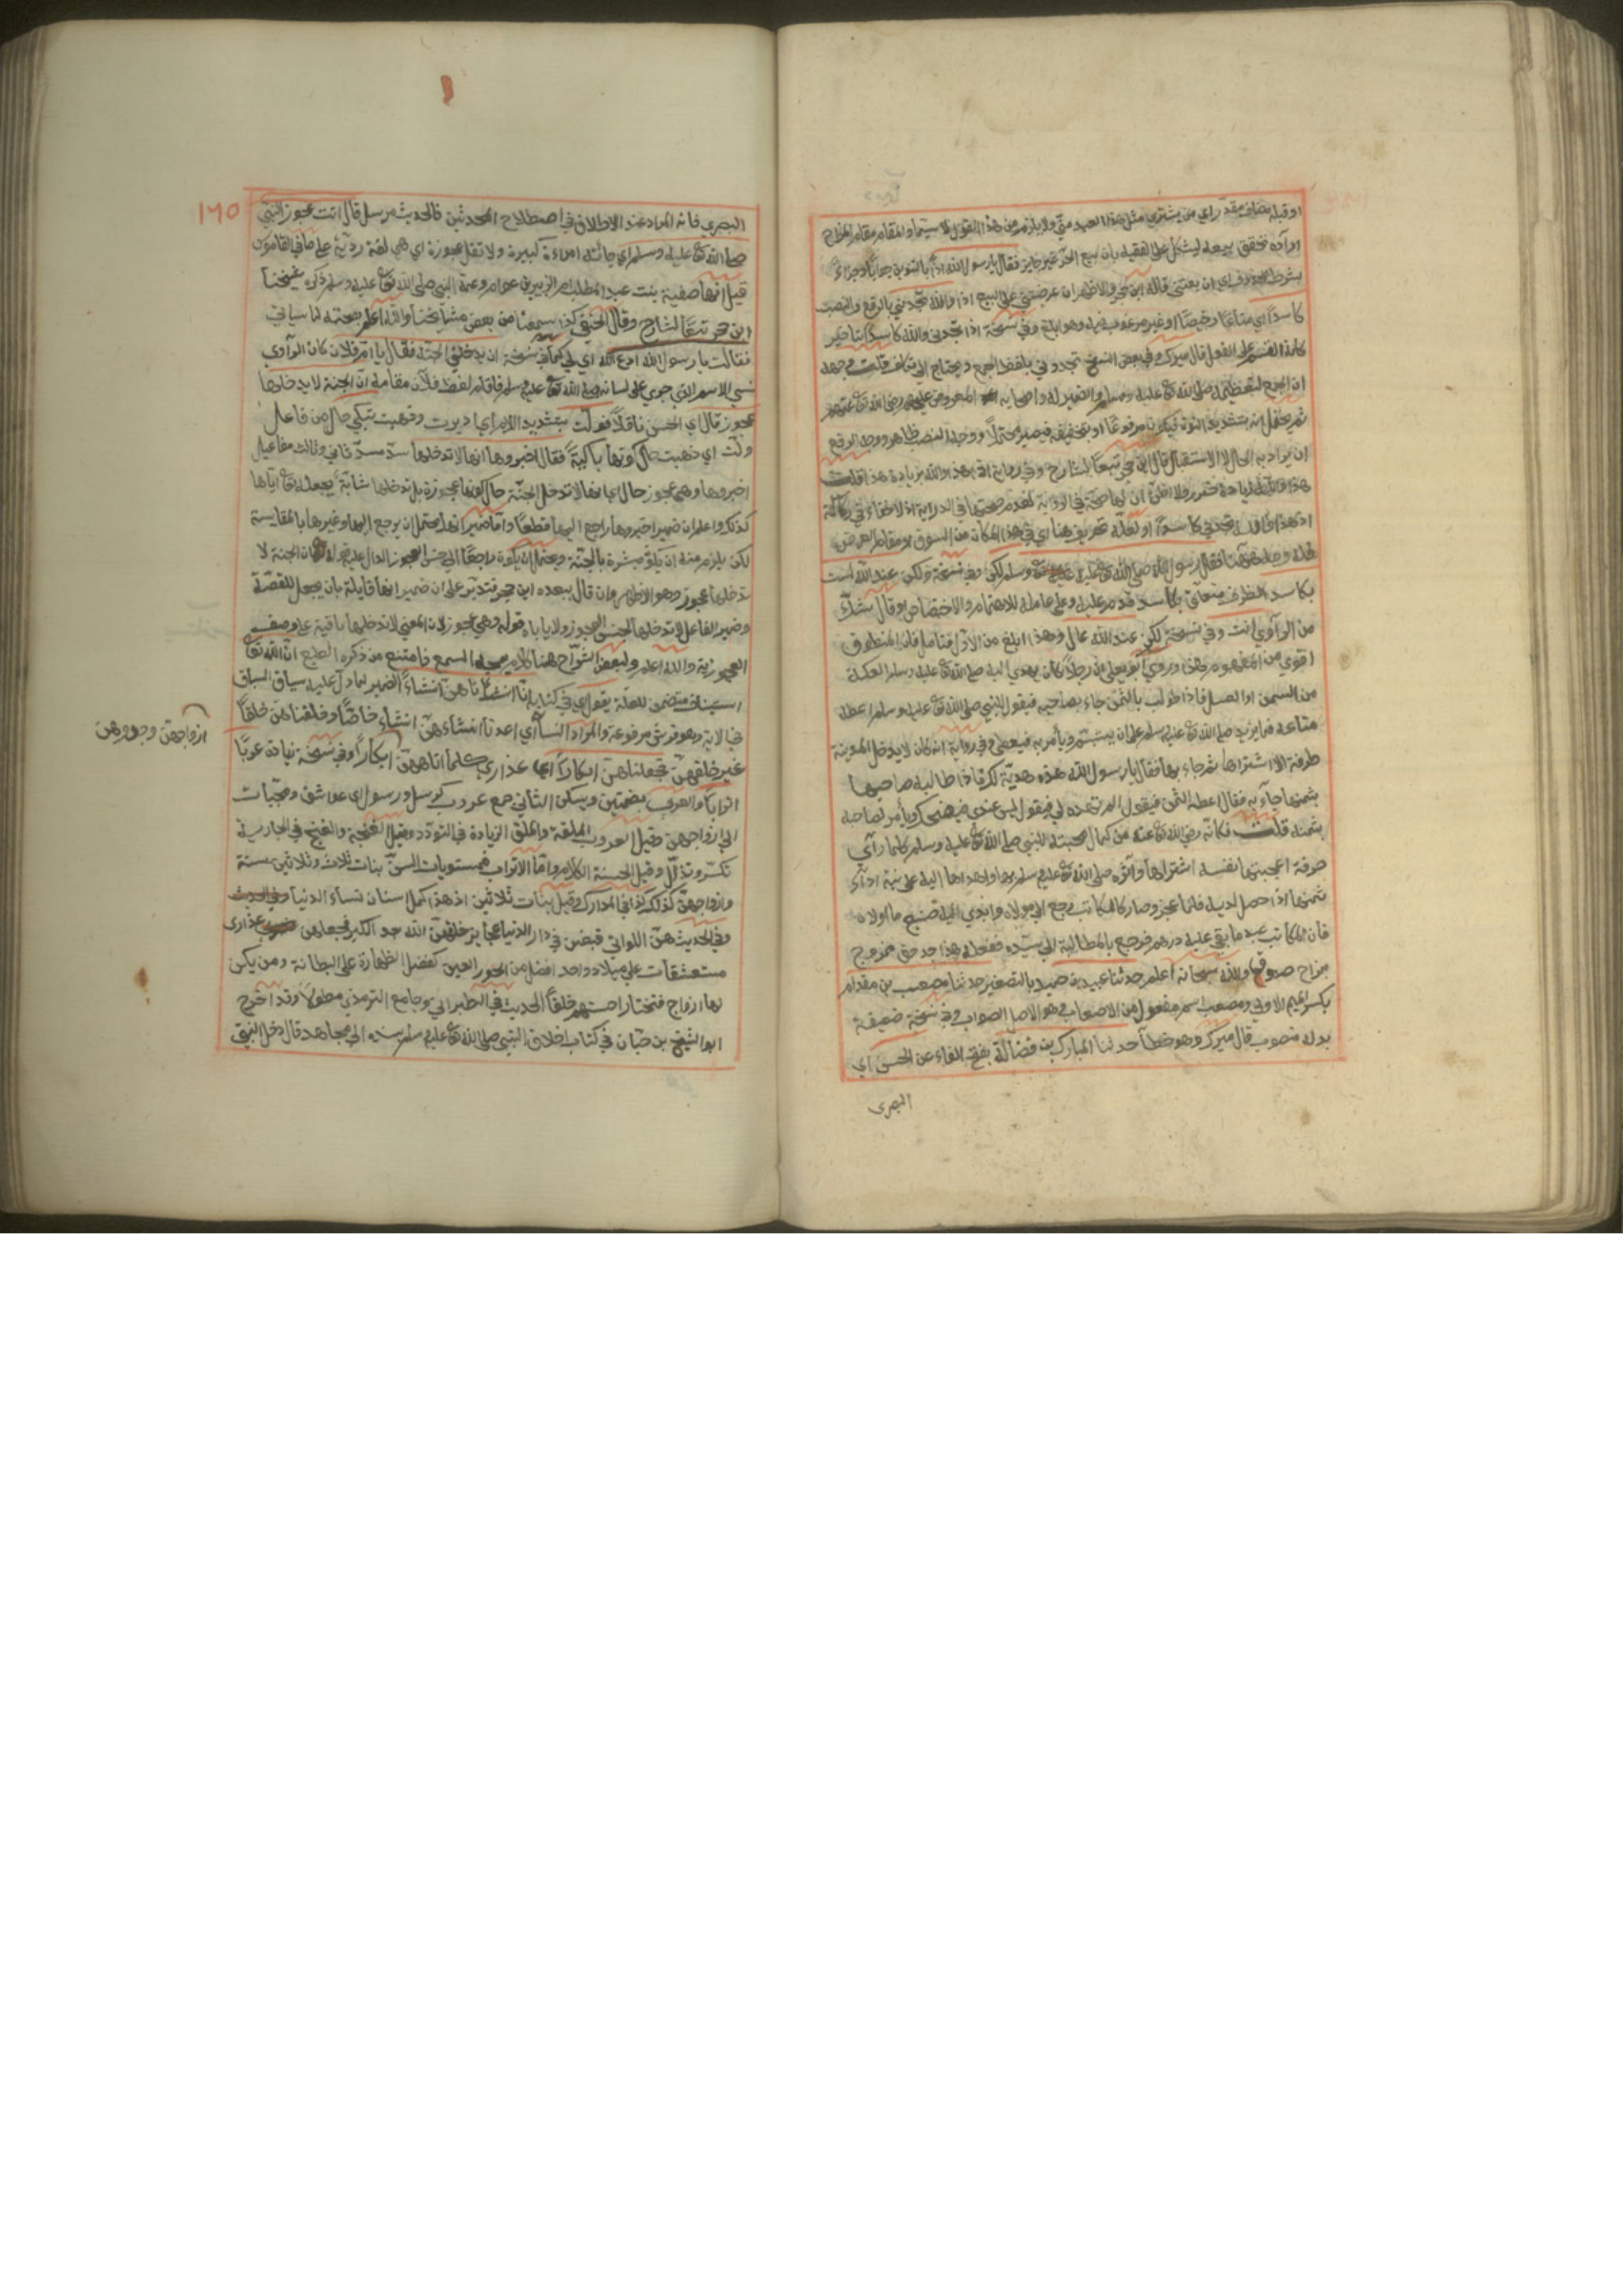 او قبله مضاف مقدر اي من يشتري مثل هذا العبد مني ولا يلزم من هذا القول لا سيما والمقام مقام المزاح
ارادة تحقق بيعه ليشكل على الفقيه بان بيع الحر غير جايز فقال يا رسول الله اذا بالتنوين جوابا وجزاء
بشرط محذوف اي ان بعتني قاله ابن حجر والاظهر ان عرضتني على البيع اذا والله تجدني بالرفع والنصب
كاسدا اي متاعا رخيصا او غير مرغوب فيه وفي نسخة اذا تجدني والله كاسدا بتاخير
كلمة القسم على الفعل قال ميرك وفي بعض النسخ تجدوني بلفظ الجمع ويحتاج الى تكلف قلت وجهه
ان الجمع لتعظيمه صلى الله تع عليه وسلم او الضمير له واصحابه المعروض عليهم رضي الله تع عنهم
ثم يحتمل انه بتشديد النون فيكون مرفوعا او بتخفيفه فيصير محتملا ووجه النصب ظاهر ووجه الرفع
ان يراد به الحال لا الاستقبال قال ابن حجر تبعا للشارح وفي رواية اذا هذا والله بزيادة هذا قلت
اذ هذا تجدني كاسدا ولعله تحريف هنا اي في هذا المكان من السوق او مقام العرض
فقال رسول الله صلى الله تع عليه وسلم لكن وفي نسخة ولكن عند الله لست
بكاسد الظرف متعلق بكاسد قدم عليه وعلى عامله للاهتمام والاختصاص او قال بشك
من الراوي انت وفي نسخة لكن عند الله غال وهذا ابلغ من الاول فتامل فان المنطوق
اقوى من المفهوم هذا وروى ابو يعلى ان رجلا كان يهدي اليه صلى الله تع عليه وسلم العكة
من السمن او العسل فاذا طولب بالثمن جاء بصاحبه فيقول للنبي صلى الله تع عليه وسلم اعطه
متاعه فما يزيد صلى الله تع عليه وسلم على ان يبتسم ويأمر به فيعطى وفي رواية انه كان لا يدخل المدينة
طرفة الا اشتراها ثم جاء بها فقال يا رسول الله هذه هدية لك فاذا طالبه صاحبها
بثمنها جاء به فقال اعطه الثمن فيقول الم تهده لي فيقول ليس عندي فيضحك ويأمر لصاحبه
بثمنه قلت فكانه رضي الله تع عنه من كمال محبته للنبي صلى الله تع عليه وسلم كلما رآى
طرفة اعجبتها نفسه اشتراها وآثره صلى الله تع عليه وسلم بها واهداها اليه على نية اداء
ثمنها اذا حصل لديه فلما عجز وصار كالمكاتب رجع الى مولاه وابدى اليه صنيع ما اولاه
فان المكاتب عبد ما بقي عليه درهم فرجع بالمطالبة الى سيده ففعله هذا جد حق ممزوج
بمزاح صدق والله سبحانه اعلم حدثنا عبد بن حميد بالتصغير حدثنا مصعب بن مقدام
بكسر الميم الاولى ومصعب اسم مفعول من الاصعاب وهو الاصل الصواب وفي نسخة ضعيفة
بدله منصوب قال ميرك وهو خطأ حدثنا المبارك بن فضالة بفتح الفاء عن الحسن اي
البصرى
١٦٥
البصري فانه المراد عند الاطلاق في اصطلاح المحدثين فالحديث مرسل قال اتت عجوز النبي
صلى الله تع عليه وسلم اي جائته امراءة كبيرة ولا تقل عجوزة اي هي لغة ردية على ما في القاموس
قيل انها صفية بنت عبد المطلب ام الزبير بن عوام وعمة النبي صلى الله تع عليه وسلم ذكره شيخنا
ابن حجر تبعا للشارح وقال الحنفي كذا سمعنا من بعض مشايخنا والله اعلم بصحته لما سياتي
فقالت يا رسول الله ادع الله اي لي كما في نسخة ان يدخلني الجنة فقال يا ام فلان كان الراوي
نسي الاسم الذي جرى على لسانه صلى الله تع عليه وسلم فاقام لفظ فلان مقامه ان الجنة لا يدخلها
عجوز قال اي الحسن ناقلا فولت بتشديد اللام اي ادبرت وذهبت تبكي حال من فاعل
ولت اي ذهبت حال كونها باكية فقال اخبروها انها لا تدخلها سد مسد ثاني وثالث مفاعيل
اخبروها وهي عجوز حال اي انها لا تدخل الجنة حال كونها عجوزة بل تدخلها شابة بجعله تع اياها
كذلك واعلم ان ضمير اخبروها راجع اليها قطعا واما ضمير انها يحتمل ان يرجع اليها وغيرها بالمقايسة
لكن يلزم منه ان تكون مبشرة بالجنة ويحتمل ان يكون راجعا الى جنس العجوز الدال عليه قوله ان الجنة لا
تدخلها عجوز وهو الاظهر وان قال ببعده ابن حجر فتدبر على ان ضمير انها قابلة بان يجعل للقصة
وضمير الفاعل لا تدخلها لجنس العجوز ولا ياباه قوله وهي عجوز لان المعنى لا تدخلها باقية على وصف
العجوزية والله اعلم ولبعض الشراح هنا كلام يمجه السمع فامتنع من ذكره الطبع ان الله تع
استيناف متضمن للعلة يقول اي في كتابه انا انشأناهن انشاء الضمير لما دل عليه سياق السباق
في الاية وهو فرش مرفوعة والمراد النسأ اي اعدنا انشاءهن انشاء خاصا وخلقناهن خلقا
غير خلقهن فجعلناهن ابكارا اي عذارى كلما اتاهن ابكارا وفي نسخة زيادة عربا
ازواجهن وجدوهن
اترابا والعرب بضمتين ويسكن الثاني جمع عروب كرسل ورسول اي عواشق ومحببات
الى ازواجهن وقيل العروب الملقة والملق الزيادة في التودد وقيل الغنجة والغنج في الجارية
تكسر وتذلل وقيل الحسنة الكلام واما الاتراب فمستويات السن بنات ثلاث وثلاثين سنة
وازواجهن كذلك كذا في المدارك وقيل بنات ثلاثين اذ هذا اكمل اسنان نساء الدنيا
وفي الحديث هن اللواتي قبضن في دار الدنيا عجايز خلقهن الله بعد الكبر فجعلهن عذارى
متعشقات على ميلاد واحد افضل من الحور العين كفضل الظهارة على البطانة ومن يكن
لها ازواج فتختار احسنهم خلقا الحديث في الطبراني وجامع الترمذي مطولا وقد اخرج
ابو الشيخ بن حبان في كتاب اخلاق النبي صلى الله تع عليه وسلم بسنده الى مجاهد قال دخل النبي